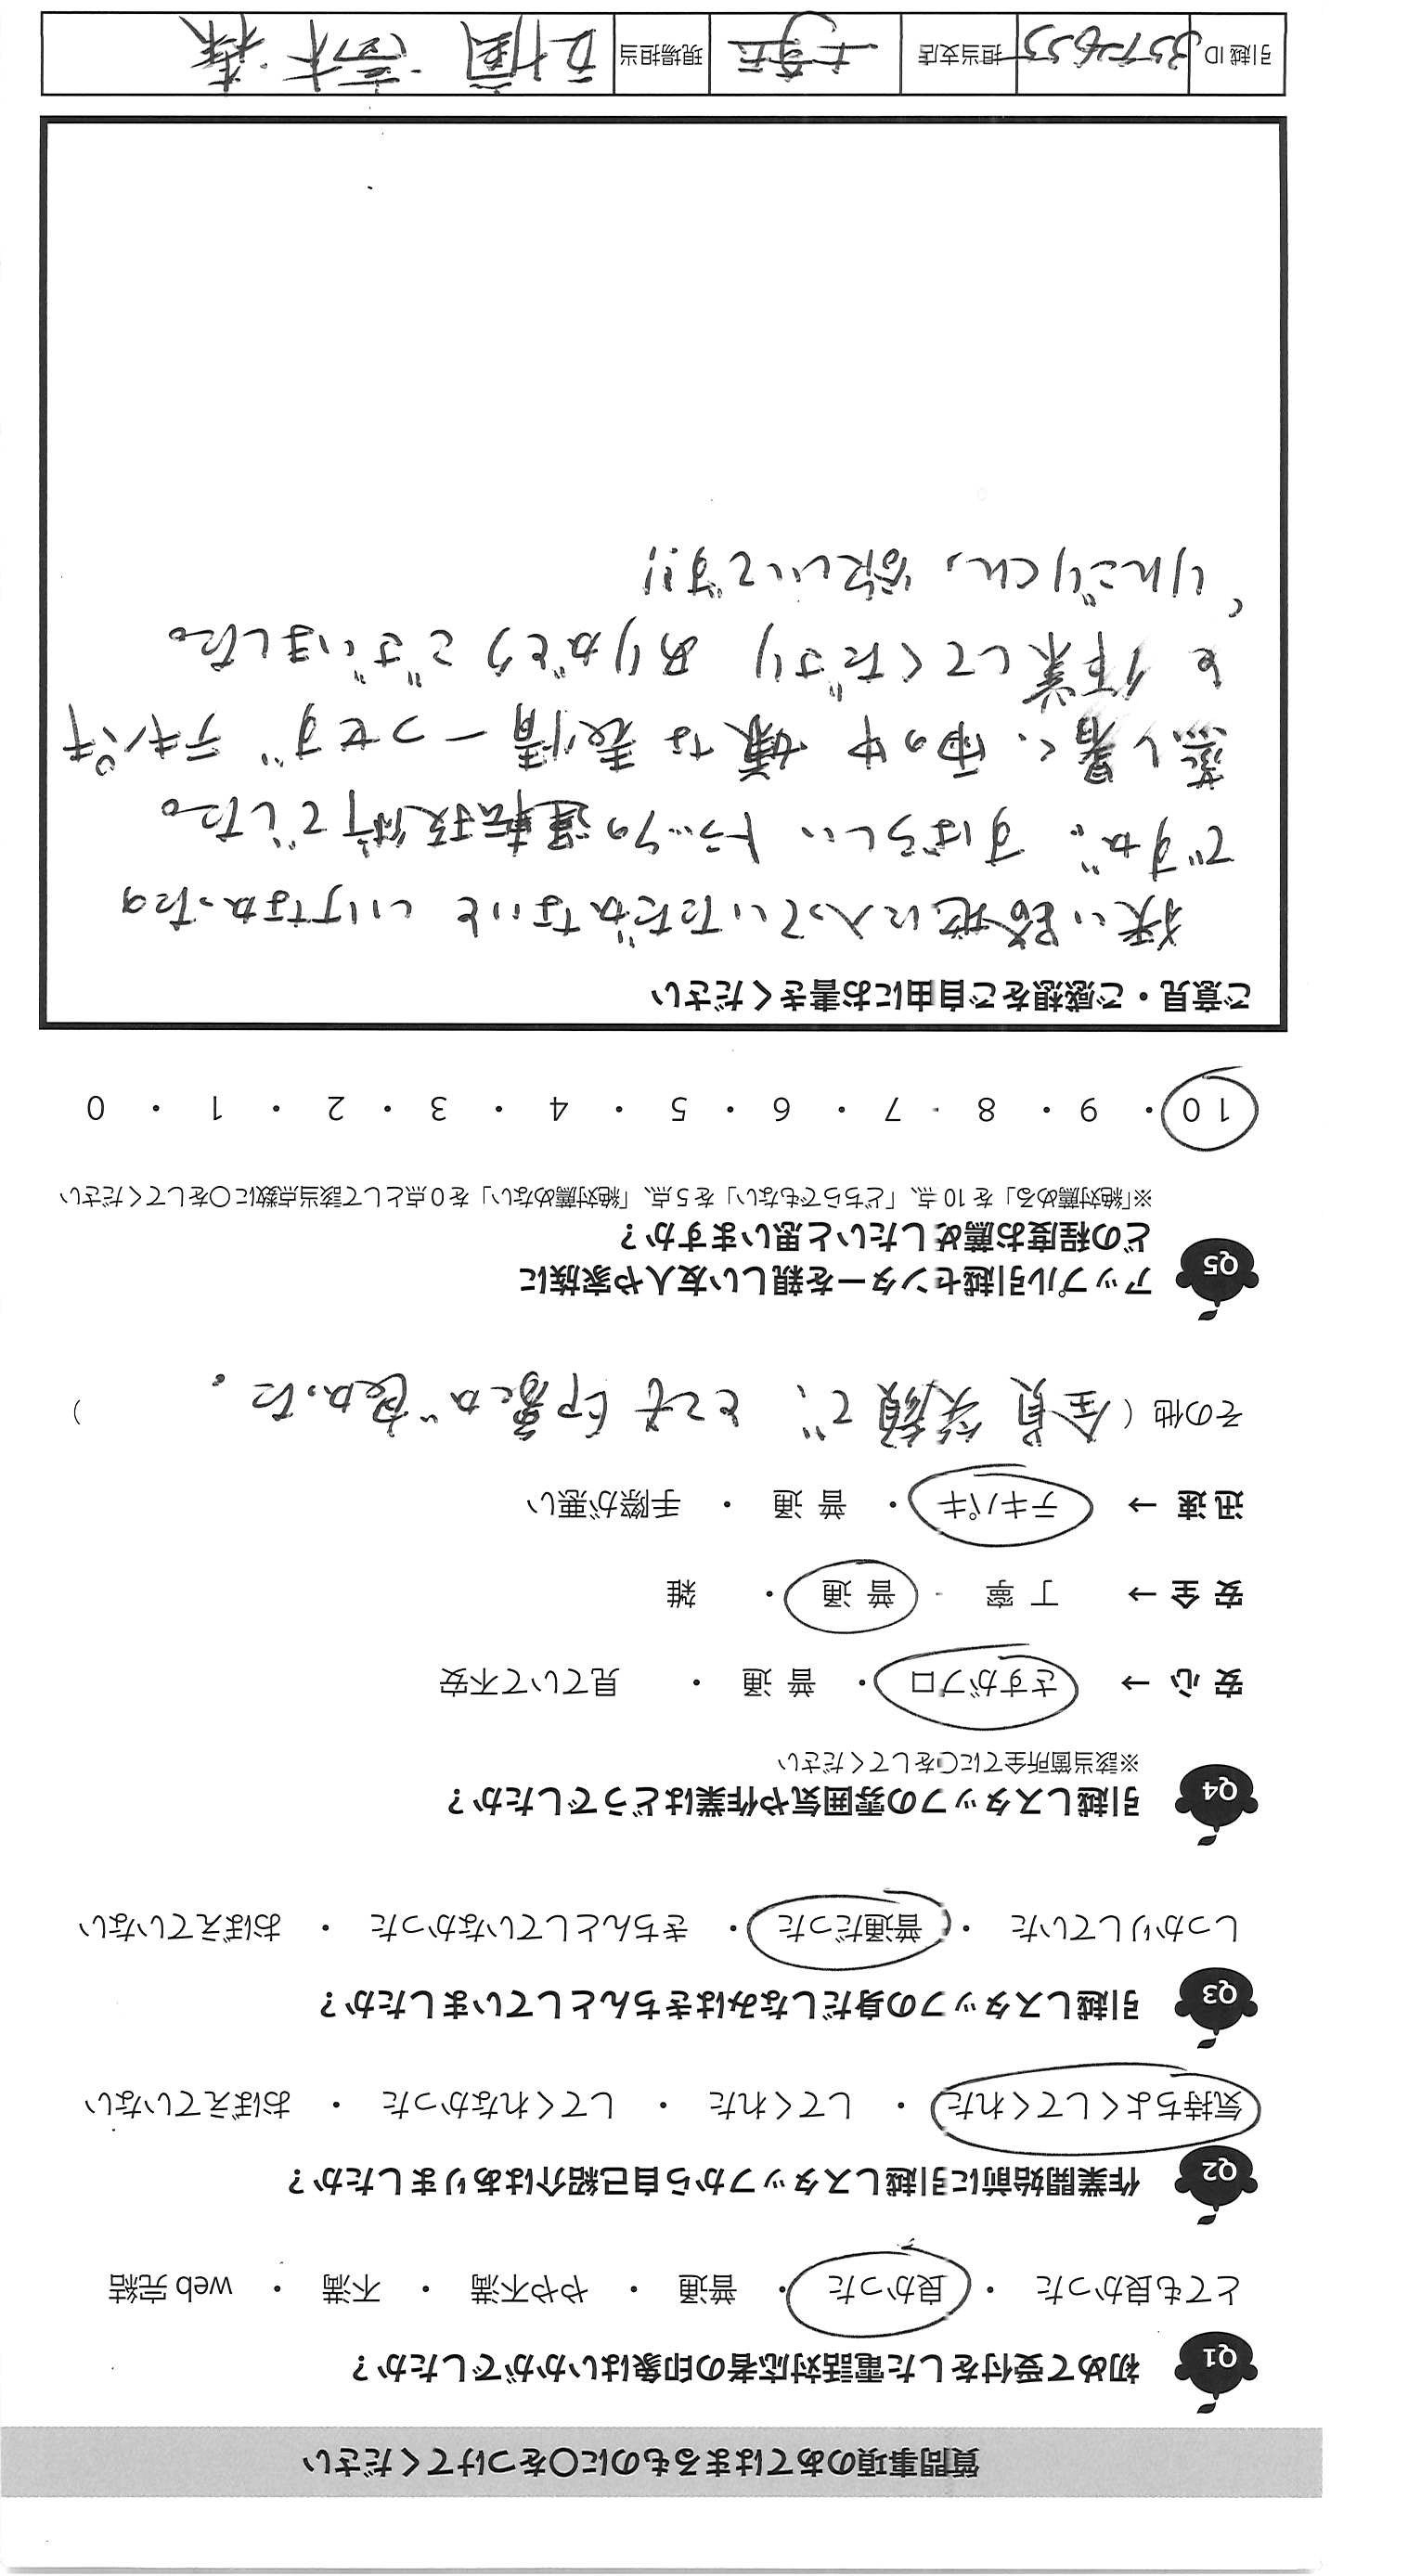 質問事項のあてはまるものに〇をつけてください
Q1 初めて受付をした電話対応者の印象はいかがでしたか？
とても良かった ・ 良かった ・ 普通 ・ やや不満 ・ 不満 ・ web 完結
Q2 作業開始前に引越しスタッフから自己紹介はありましたか？
気持ちよくしてくれた ・ してくれた ・ してくれなかった ・ おぼえていない
Q3 引越しスタッフの身だしなみはきちんとしていましたか？
しっかりしていた ・ 普通だった ・ きちんとしていなかった ・ おぼえていない
Q4 引越しスタッフの雰囲気や作業はどうでしたか？
※該当箇所全てに〇をしてください
安 心 → さすがプロ ・ 普 通 ・ 見ていて不安
安 全 → 丁 寧 ・ 普 通 ・ 雑
迅 速 → テキパキ ・ 普 通 ・ 手際が悪い
その他（ 全員 笑顔で、とても印象が良かった。 ）
Q5 アップル引越センターを親しい友人や家族に
どの程度お薦めしたいと思いますか？
※「絶対薦める」を 10 点、「どちらでもない」を 5 点、「絶対薦めない」を 0 点として該当点数に〇をしてください
10 ・ 9 ・ 8 ・ 7 ・ 6 ・ 5 ・ 4 ・ 3 ・ 2 ・ 1 ・ 0
ご意見・ご感想をご自由にお書きください
狭い路地に入っていただかないといけなかったの
ですが、すばらしい トラックの運転技術でした。
蒸し暑く、雨の中 嫌な表情一つせず テキパキ
と作業してくださり ありがとうございました。
りんごりくん、欲しいです!!
引越 ID 3572655 担当支店 現場担当 高木 様